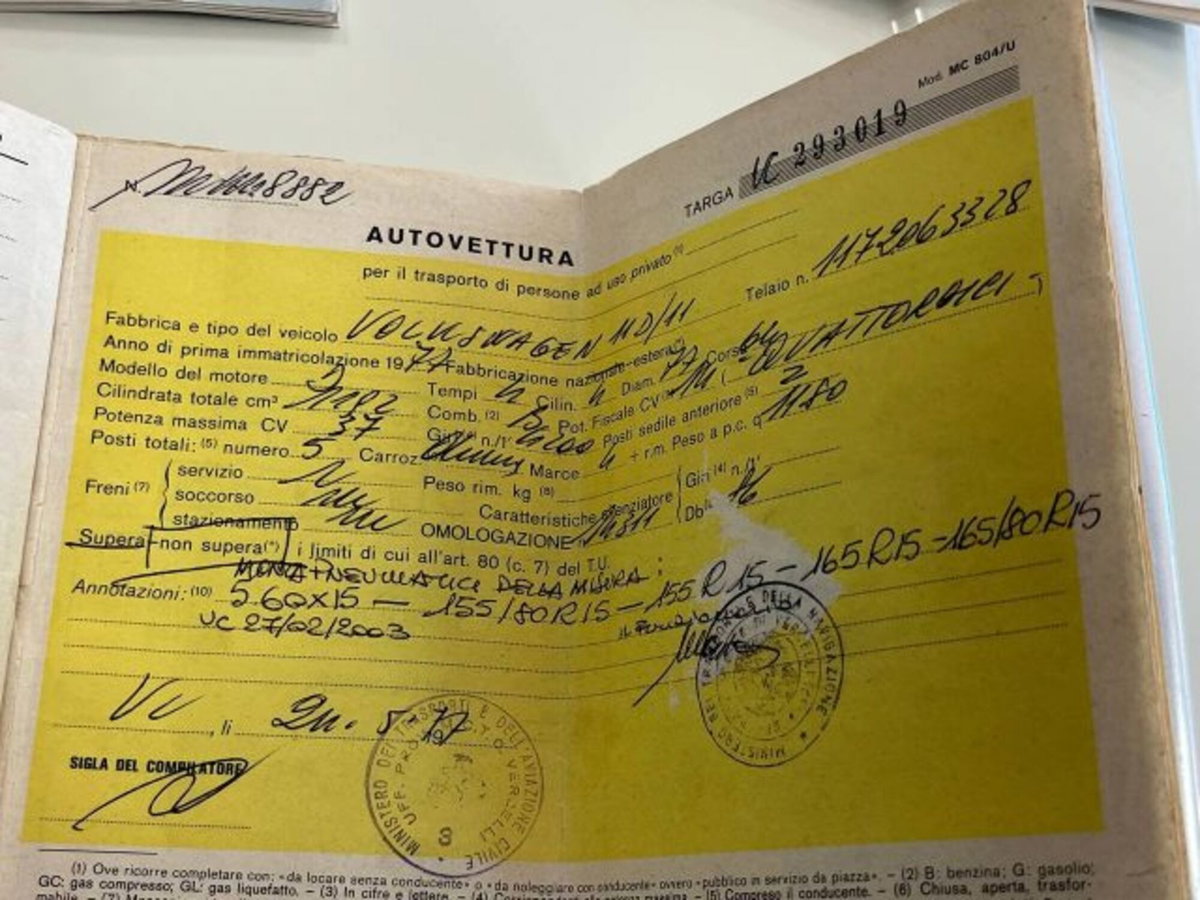 Mod. MC 804/U
TARGA VC 293019
N. 8882
AUTOVETTURA
per il trasporto di persone ad uso privato(1)
Telaio n. 1172063328
Fabbrica e tipo del veicolo VOLKSWAGEN 11D/11
Anno di prima immatricolazione 1977 Fabbricazione nazionale-estera(*)
Modello del motore Tempi 4 Cilin. 4 Diam. 77 Corsa 64
Cilindrata totale cm³ 1192 Comb.(2) B Pot. Fiscale CV(3) 14 (QUATTORDICI)
Potenza massima CV 37 Giri(4) n./1' Posti sedile anteriore(5) 2
Posti totali:(5) numero 5 Carroz. Chiusa Marce 4 + r.m. Peso a p.c. q 1180
Freni(7)
servizio Peso rim. kg(8)
soccorso Caratteristiche silenziatore Giri(4) n./1'
stazionamento OMOLOGAZIONE 14311 Db 76
Supera-non supera(*) i limiti di cui all'art. 80 (c. 7) del T.U.
MONTA PNEUMATICI DELLA MISURA:
Annotazioni:(10) 5.60X15 - 155/80R15 - 155R15 - 165R15 - 165/80R15
VC 27/02/2003 il Funzionario
Vc, li 24.5.1977
SIGLA DEL COMPILATORE
MINISTERO DEI TRASPORTI E DELL'AVIAZIONE CIVILE
UFF. PROV. M.C.T.C. VERCELLI
3
MINISTERO DEI TRASPORTI E DELLA NAVIGAZIONE
(1) Ove ricorre completare con: «da locare senza conducente» o «da noleggiare con conducente» ovvero «pubblico in servizio da piazza». – (2) B: benzina; G: gasolio;
GC: gas compresso; GL: gas liquefatto. – (3) In cifre e lettere. – (4) Corrispondenti alla potenza massima. – (5) Compreso il conducente. – (6) Chiusa, aperta, trasfor-
mabile. – (7)